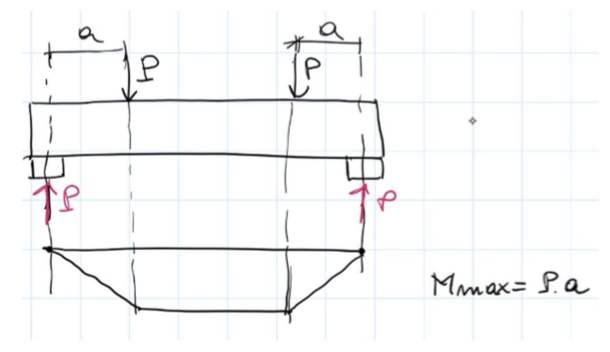 a a
P P
P P
Mmax= P.a